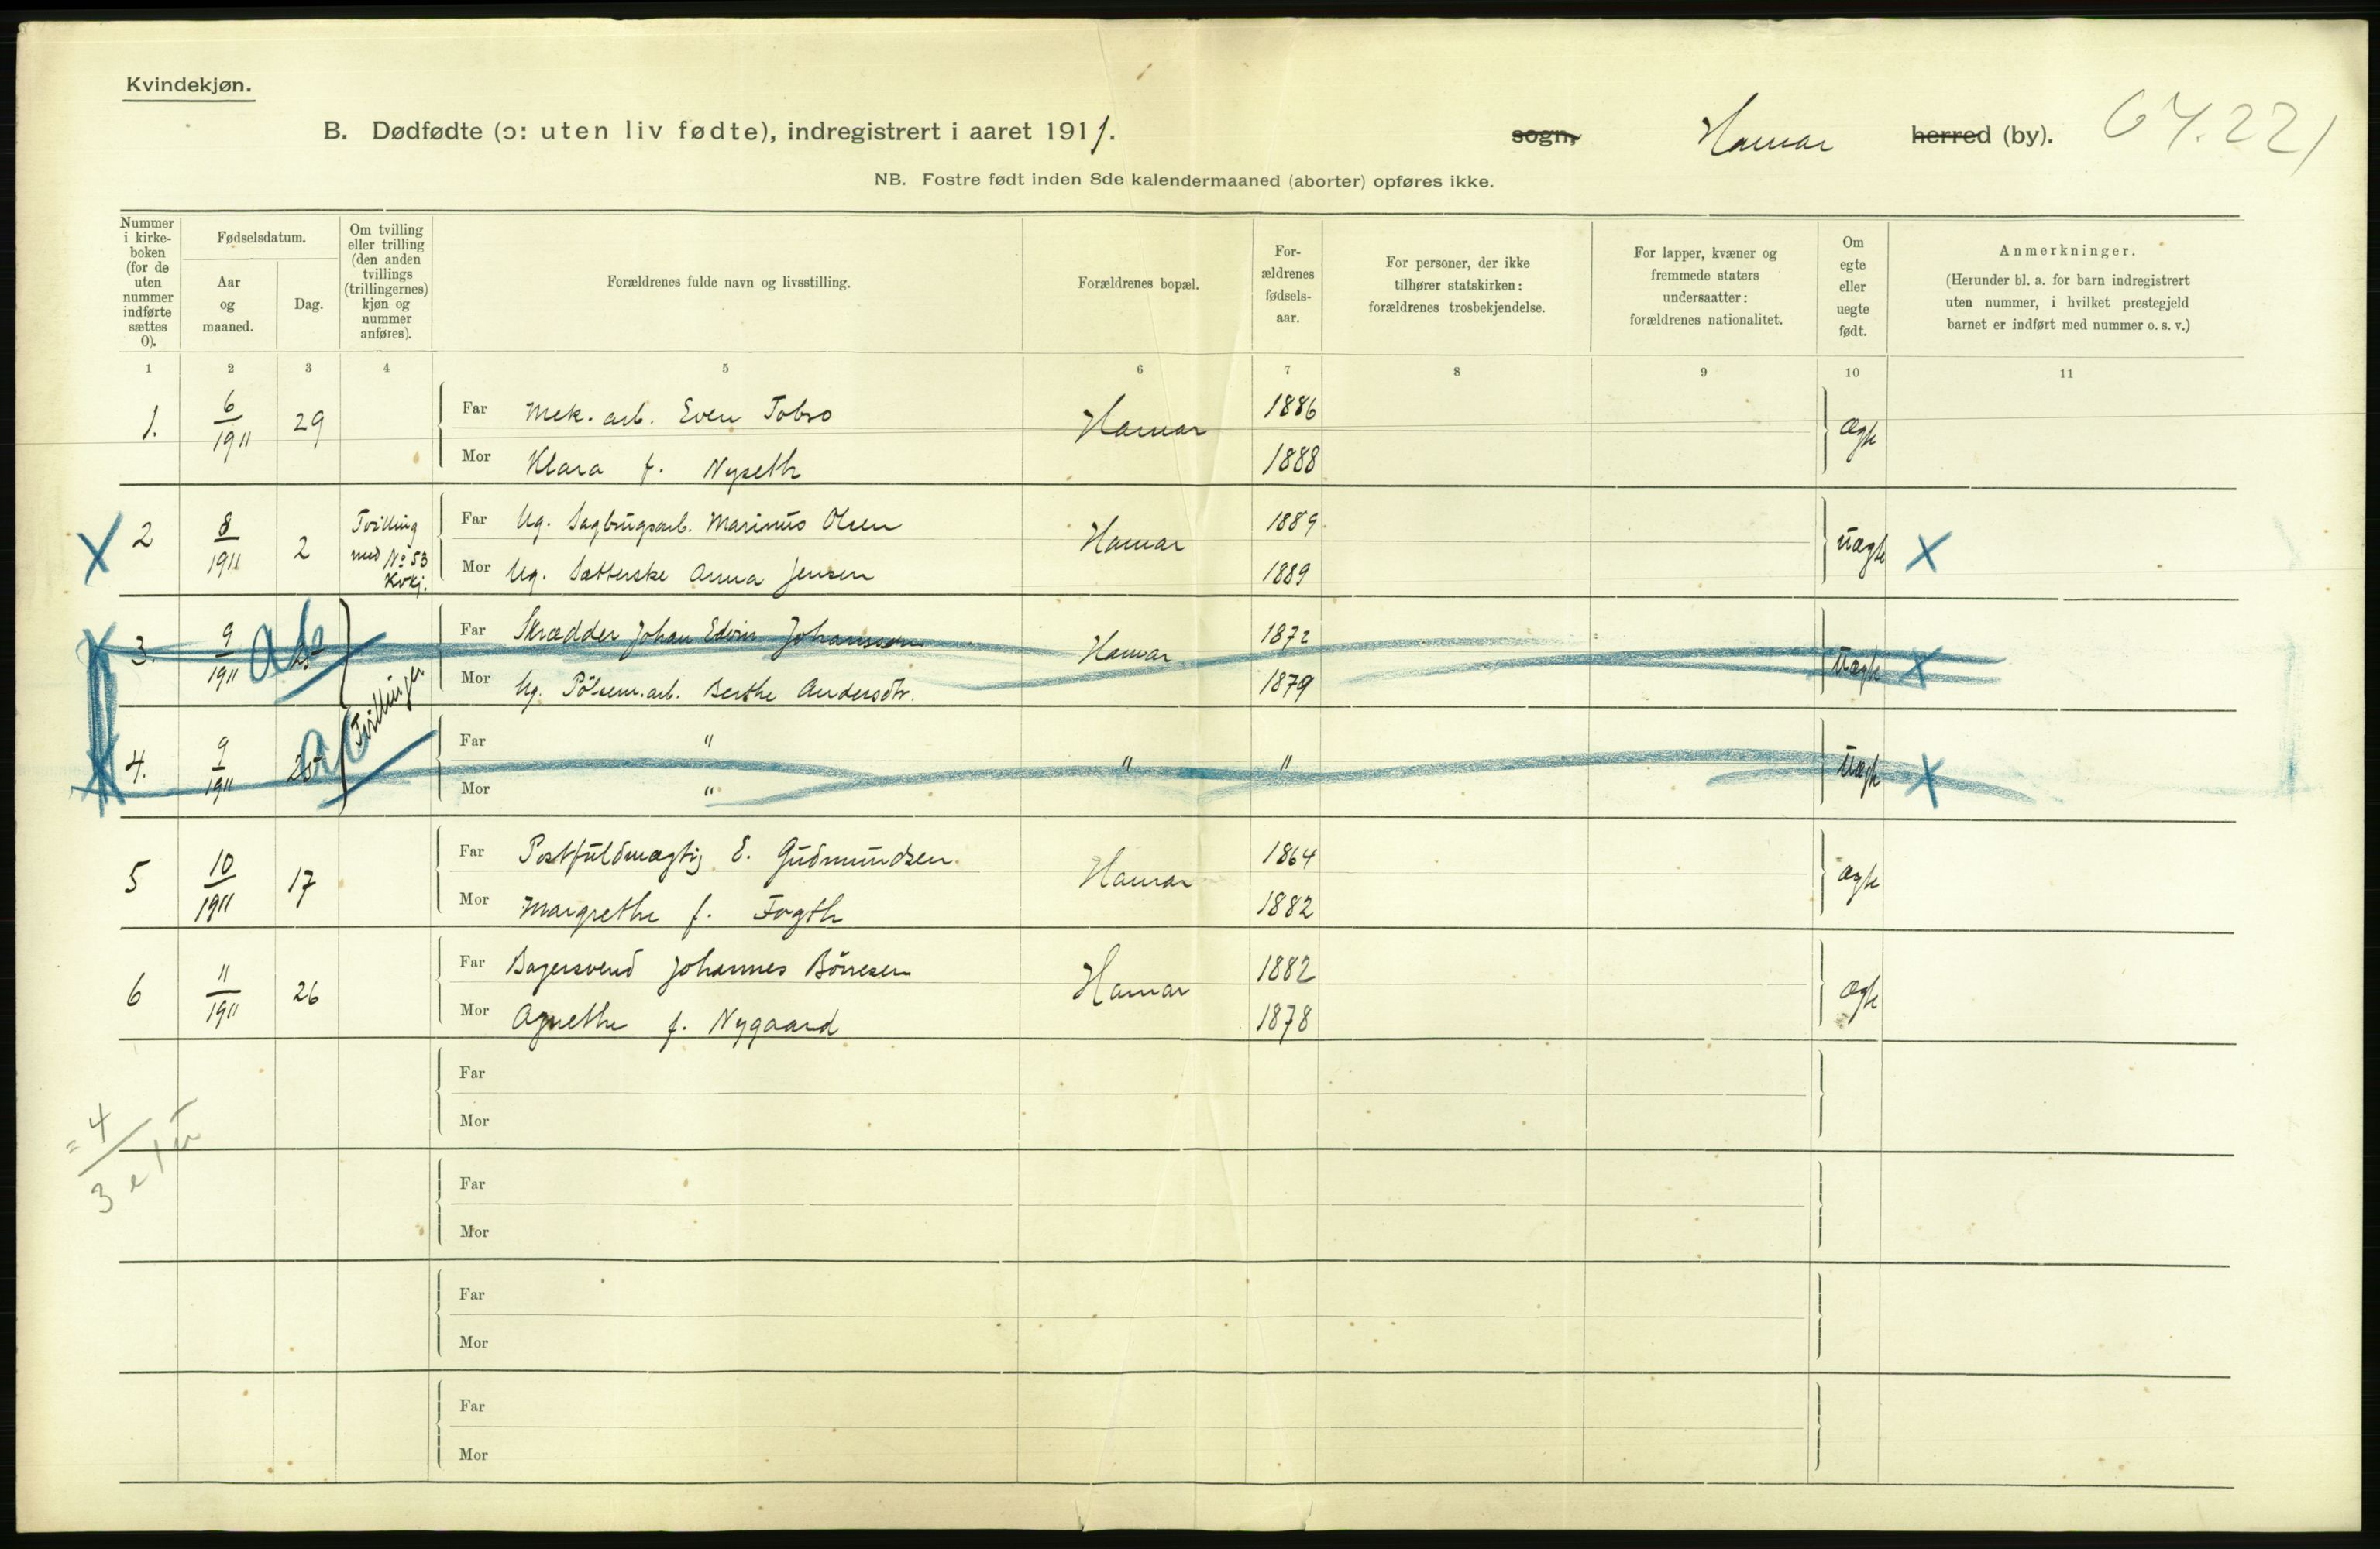 Kvindekjøn.
B. Dødfødte (ɔ: uten liv fødte), indregistrert i aaret 1911. sogn, Hamar herred (by). 64.221
NB. Fostre født inden 8de kalendermaaned (aborter) opføres ikke.
Nummer i kirke-boken (for de uten nummer indførte sættes 0).
Fødselsdatum.
Aar og maaned.
Dag.
Om tvilling eller trilling (den anden tvillings (trillingernes) kjøn og nummer anføres).
Forældrenes fulde navn og livsstilling.
Forældrenes bopæl.
For-ældrenes fødsels-aar.
For personer, der ikke tilhører statskirken: forældrenes trosbekjendelse.
For lapper, kvæner og fremmede staters undersaatter: forældrenes nationalitet.
Om egte eller uegte født.
Anmerkninger.
(Herunder bl. a. for barn indregistrert uten nummer, i hvilket prestegjeld barnet er indført med nummer o. s. v.)
1 2 3 4 5 6 7 8 9 10 11
1. 6/1911 29 Far Mek. arb. Even Tobro Hamar 1886 ægte
Mor Klara f. Nyseth 1888
X 2 8/1911 2 Tvilling med No 53 Kvkj. Far Ug. Sagbrugsarb. Marinus Olsen Hamar 1889 uægte X
Mor Ug. Sætterske Anna Jensen 1889
X 3. 9/1911 25 ab Tvillinger Far Skrædder Johan Edvin Johansson Hamar 1872 Uægte X
Mor Ug. Pölsem.arb. Berthe Andersdtr. 1879
X 4. 9/1911 25 Far " " " Uægte X
Mor "
5 10/1911 17 Far Postfuldmægtig E. Gudmundsen Hamar 1864 ægte
Mor Margrethe f. Fogth 1882
6 11/1911 26 Far Bagersvend Johannes Börresen Hamar 1882 ægte
Mor Agnethe f. Nygaard 1878
Far
Mor
= 4
3 e 1 u
Far
Mor
Far
Mor
Far
Mor